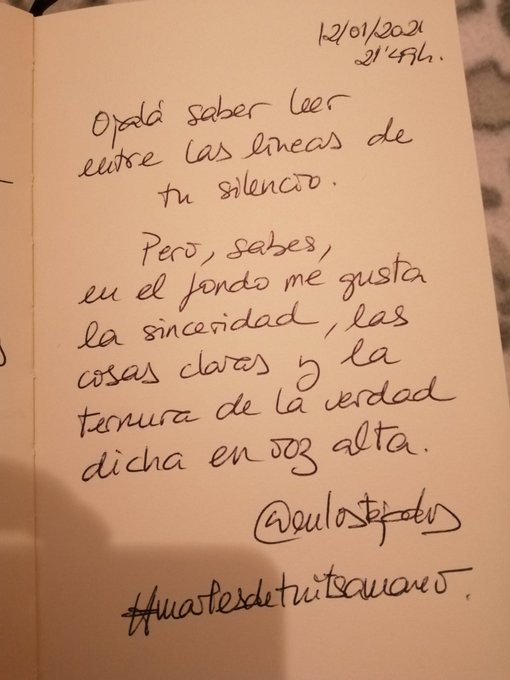 12/01/2021
21'49h.
Ojalá saber leer
entre las líneas de
tu silencio.
Pero, sabes,
en el fondo me gusta
la sinceridad, las
cosas claras y la
ternura de la verdad
dicha en voz alta.
@enlostejados
#martesdetuitsamano.